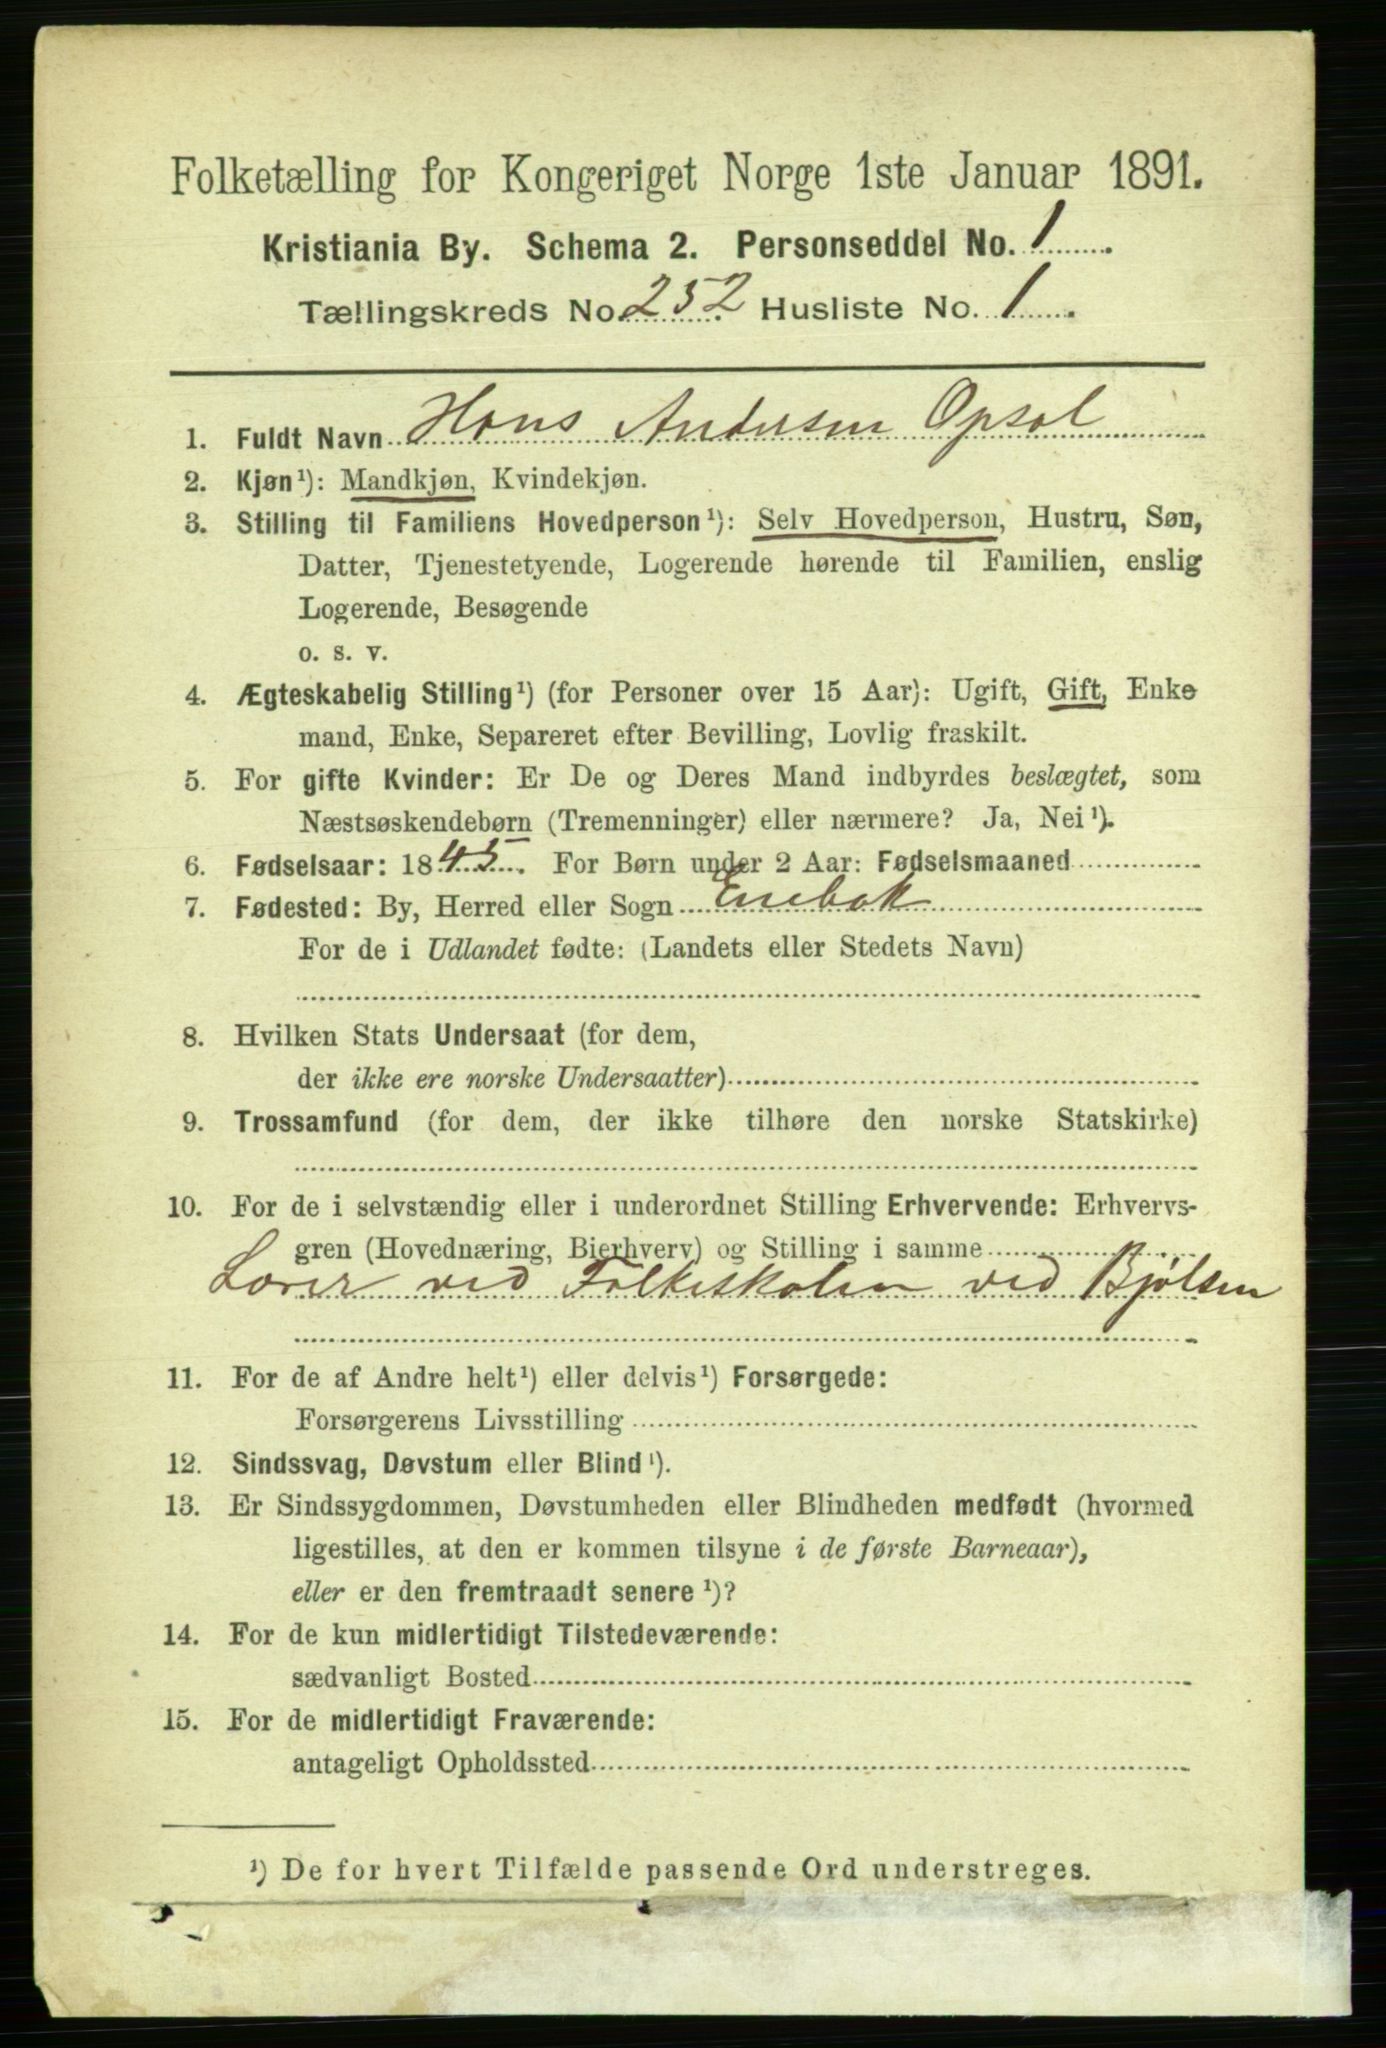 Folketælling for Kongeriget Norge 1ste Januar 1891.
Kristiania By. Schema 2. Personseddel No. 1
Tællingskreds No. 252 Husliste No. 1
1. Fuldt Navn Hans Andersen Opsal
2. Kjøn¹): Mandkjøn, Kvindekjøn.
3. Stilling til Familiens Hovedperson¹): Selv Hovedperson, Hustru, Søn,
Datter, Tjenestetyende, Logerende hørende til Familien, enslig
Logerende, Besøgende
o. s. v.
4. Ægteskabelig Stilling¹) (for Personer over 15 Aar): Ugift, Gift, Enke
mand, Enke, Separeret efter Bevilling, Lovlig fraskilt.
5. For gifte Kvinder: Er De og Deres Mand indbyrdes beslægtet, som
Næstsøskendebørn (Tremenninger) eller nærmere? Ja, Nei¹).
6. Fødselsaar: 1845. For Børn under 2 Aar: Fødselsmaaned
7. Fødested: By, Herred eller Sogn Enebak
For de i Udlandet fødte: (Landets eller Stedets Navn)
8. Hvilken Stats Undersaat (for dem,
der ikke ere norske Undersaatter)
9. Trossamfund (for dem, der ikke tilhøre den norske Statskirke)
10. For de i selvstændig eller i underordnet Stilling Erhvervende: Erhvervs-
gren (Hovednæring, Bierhverv) og Stilling i samme
Lærer ved Folkeskolen ved Bjølsen
11. For de af Andre helt¹) eller delvis¹) Forsørgede:
Forsørgerens Livsstilling
12. Sindssvag, Døvstum eller Blind¹).
13. Er Sindssygdommen, Døvstumheden eller Blindheden medfødt (hvormed
ligestilles, at den er kommen tilsyne i de første Barneaar),
eller er den fremtraadt senere¹)?
14. For de kun midlertidigt Tilstedeværende:
sædvanligt Bosted
15. For de midlertidigt Fraværende:
antageligt Opholdssted
¹) De for hvert Tilfælde passende Ord understreges.